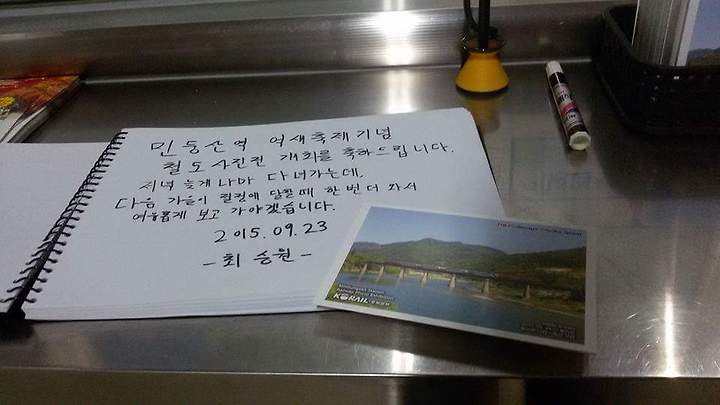 민둥산역 억새축제기념
철도사진전 개최를 축하드립니다.
저녁 늦게나마 다녀가는데,
다음 가을이 절정에 달할 때 한 번 더 와서
여유롭게 보고 가야겠습니다.
2015.09.23
- 최승원 -
KORAIL